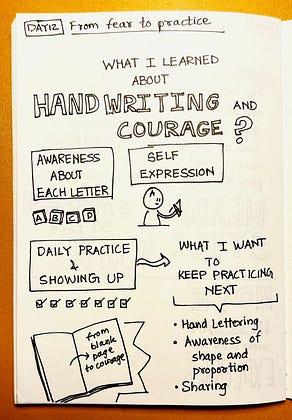 DAY12 From fear to practice
WHAT I LEARNED
ABOUT
HANDWRITING AND
COURAGE ?
AWARENESS
ABOUT
EACH LETTER
SELF
EXPRESSION
A B C D
A
DAILY PRACTICE
&
SHOWING UP
WHAT I WANT
TO
KEEP PRACTICING
NEXT
from
blank
page
to courage
• Hand Lettering
• Awareness of
shape and
proportion
• Sharing